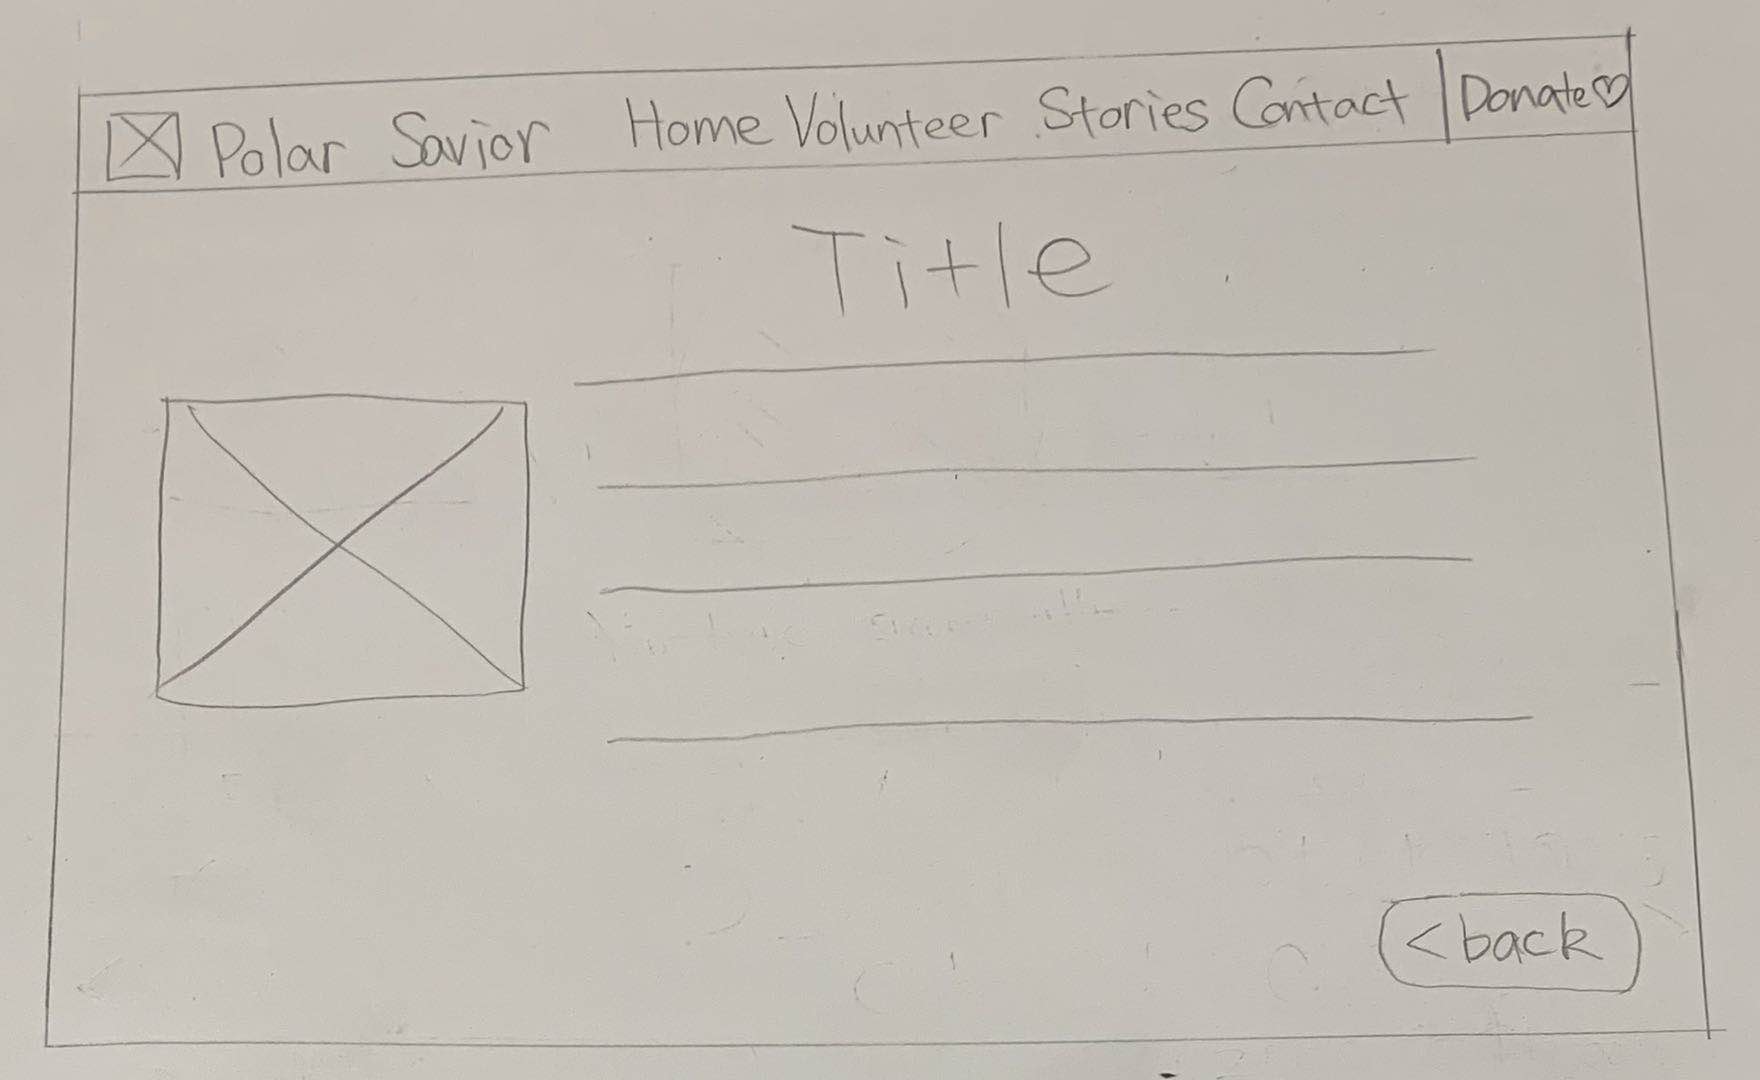 Polar Savior Home Volunteer Stories Contact Donate♡
Title
<back